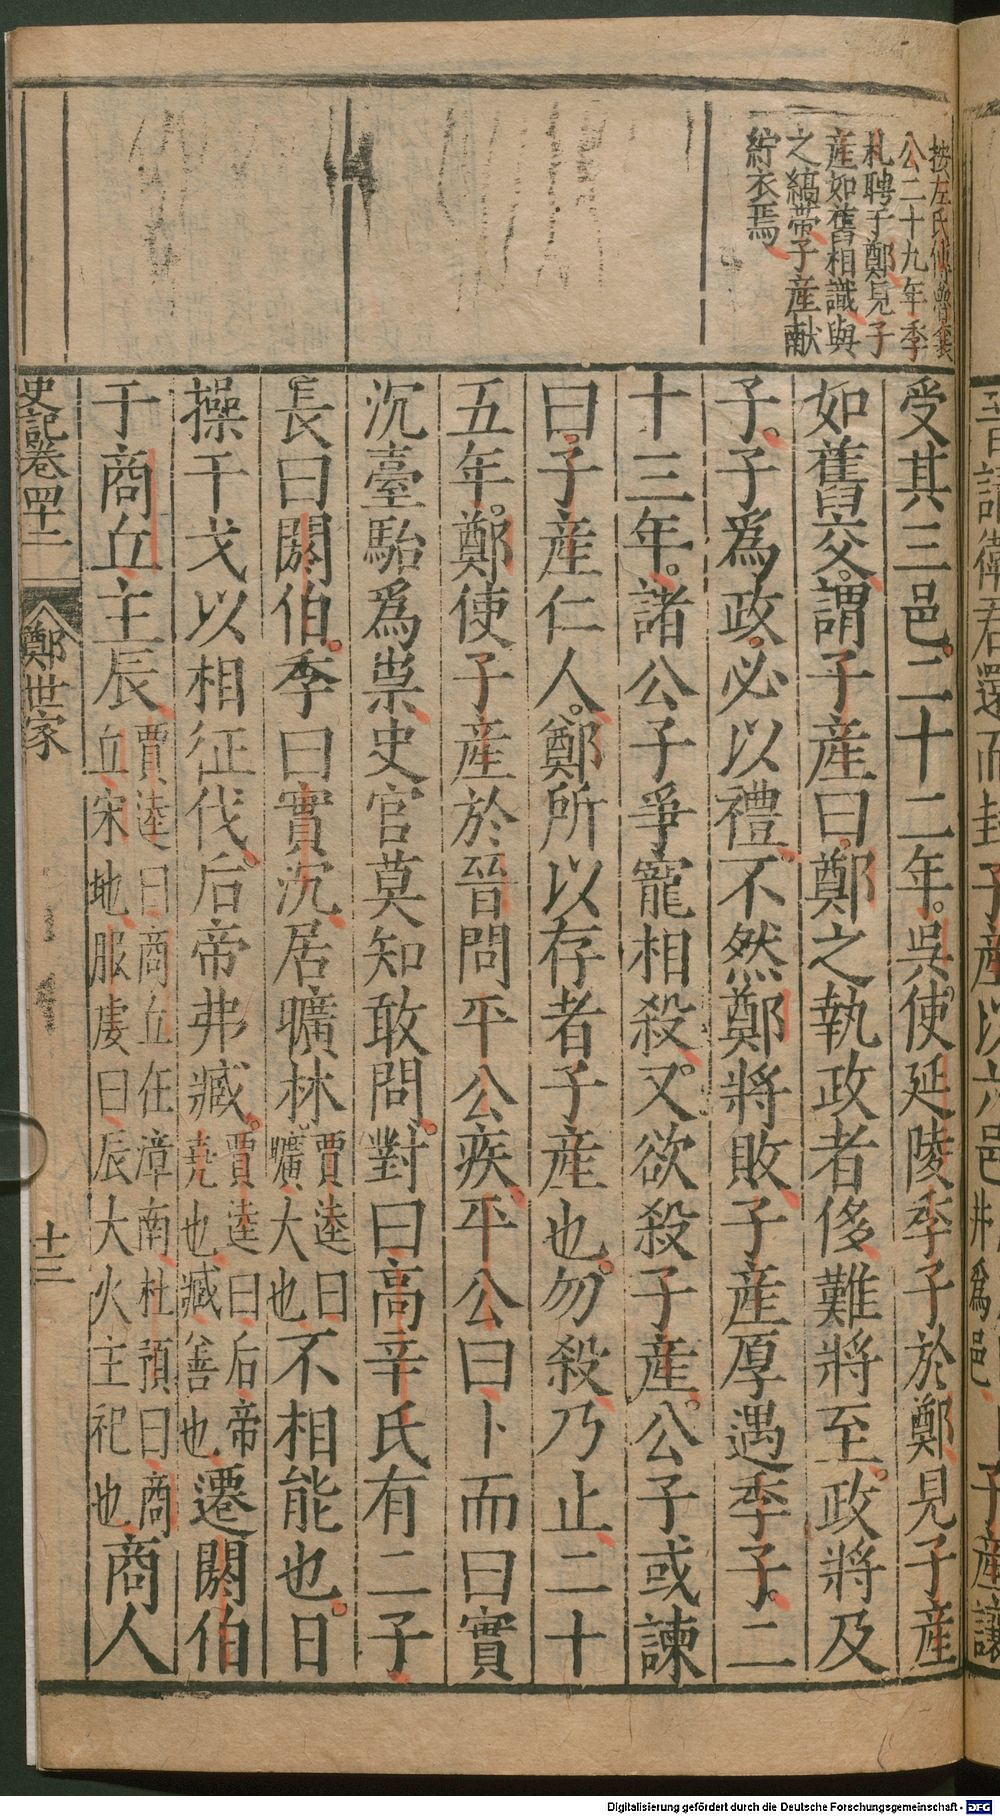 按左氏傳魯襄
公二十九年季
札聘于鄭見子
産如舊相識與
之縞帶子産献
紵衣焉
受其三邑二十二年吳使延陵季子於鄭見子産
如舊交謂子産曰鄭之執政者侈難將至政將及
子子爲政必以禮不然鄭將敗子産厚遇季子二
十三年諸公子爭寵相殺又欲殺子産公子或諫
曰子産仁人鄭所以存者子産也勿殺乃止二十
五年鄭使子産於晉問平公疾平公曰卜而曰實
沉臺駘爲祟史官莫知敢問對曰高辛氏有二子
長曰閼伯季曰實沉居曠林賈逵曰曠大也不相能也日
操干戈以相征伐后帝弗臧賈逵曰后帝堯也臧善也遷閼伯
于商丘主辰賈逵曰商丘在漳南杜預曰商丘宋地服虔曰辰大火主祀也商人
史記卷四十二
鄭世家
十二
Digitalisierung gefördert durch die Deutsche Forschungsgemeinschaft - DFG